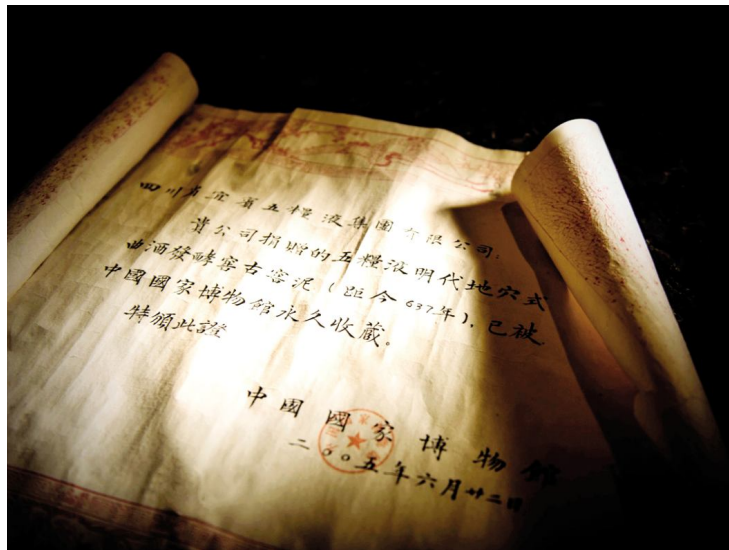 四川省宜賓五糧液集團有限公司:
貴公司捐贈的五糧液明代地穴式
曲酒發酵窖古窖泥(距今637年),已被
中國國家博物館永久收蔵。
特頒此證
中國國家博物館
二〇〇五年六月廿二日